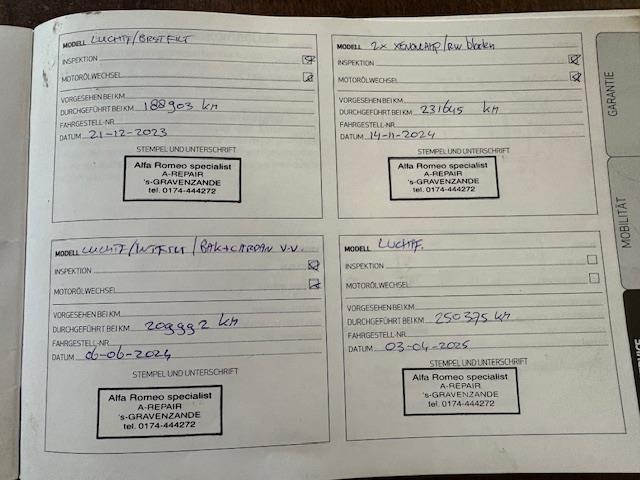 MODELL LUCHTF/BRSTFILT
INSPEKTION
MOTORÖLWECHSEL
VORGESEHEN BEI KM
DURCHGEFÜHRT BEI KM 188903 KM
FAHRGESTELL-NR
DATUM 21-12-2023
STEMPEL UND UNTERSCHRIFT
Alfa Romeo specialist
A-REPAIR
's-GRAVENZANDE
tel. 0174-444272
MODELL 2x XENONLAMP/RW bladen
INSPEKTION
MOTORÖLWECHSEL
VORGESEHEN BEI KM
DURCHGEFÜHRT BEI KM 231645 KM
FAHRGESTELL-NR
DATUM 14-11-2024
STEMPEL UND UNTERSCHRIFT
Alfa Romeo specialist
A-REPAIR
's-GRAVENZANDE
tel. 0174-444272
MODELL LUCHTF/INTFILT/BAK+CARDAN V.V.
INSPEKTION
MOTORÖLWECHSEL
VORGESEHEN BEI KM
DURCHGEFÜHRT BEI KM 209992 KM
FAHRGESTELL-NR
DATUM 06-06-2024
STEMPEL UND UNTERSCHRIFT
Alfa Romeo specialist
A-REPAIR
's-GRAVENZANDE
tel. 0174-444272
MODELL LUCHTF.
INSPEKTION
MOTORÖLWECHSEL
VORGESEHEN BEI KM
DURCHGEFÜHRT BEI KM 250375 KM
FAHRGESTELL-NR
DATUM 03-04-2025
STEMPEL UND UNTERSCHRIFT
Alfa Romeo specialist
A-REPAIR
's-GRAVENZANDE
tel. 0174-444272
GARANTIE
MOBILITÄT